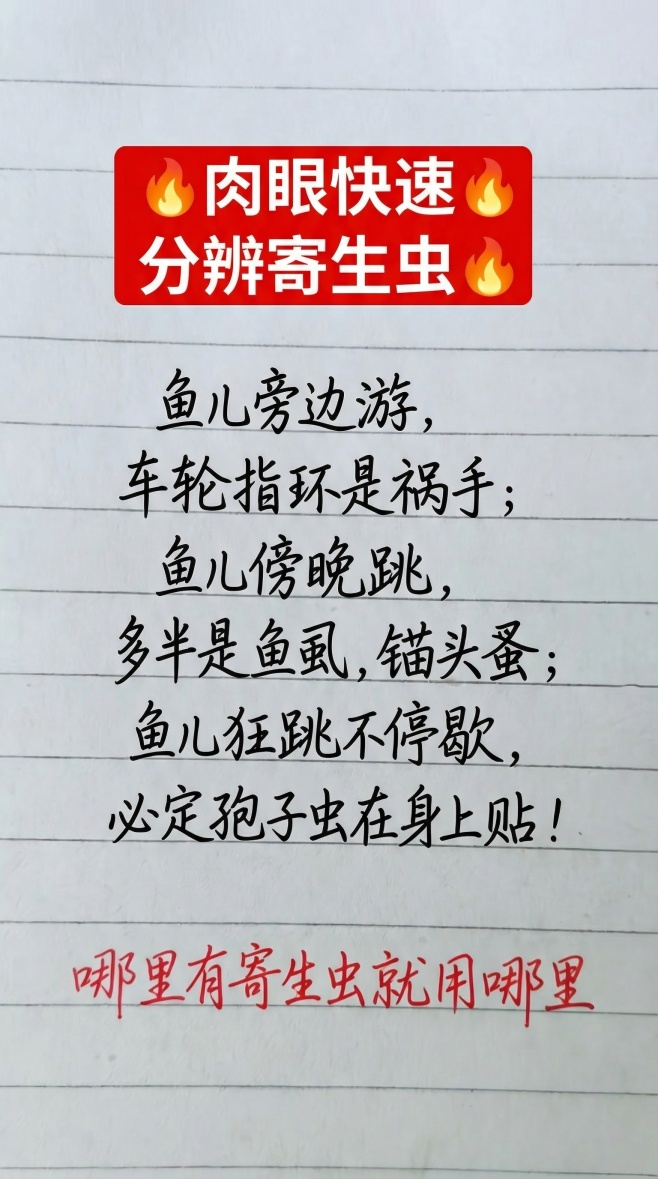 🔥肉眼快速🔥
分辨寄生虫🔥
鱼儿旁边游，
车轮指环是祸手；
鱼儿傍晚跳，
多半是鱼虱，锚头蚤；
鱼儿狂跳不停歇，
必定孢子虫在身上贴！
哪里有寄生虫就用哪里